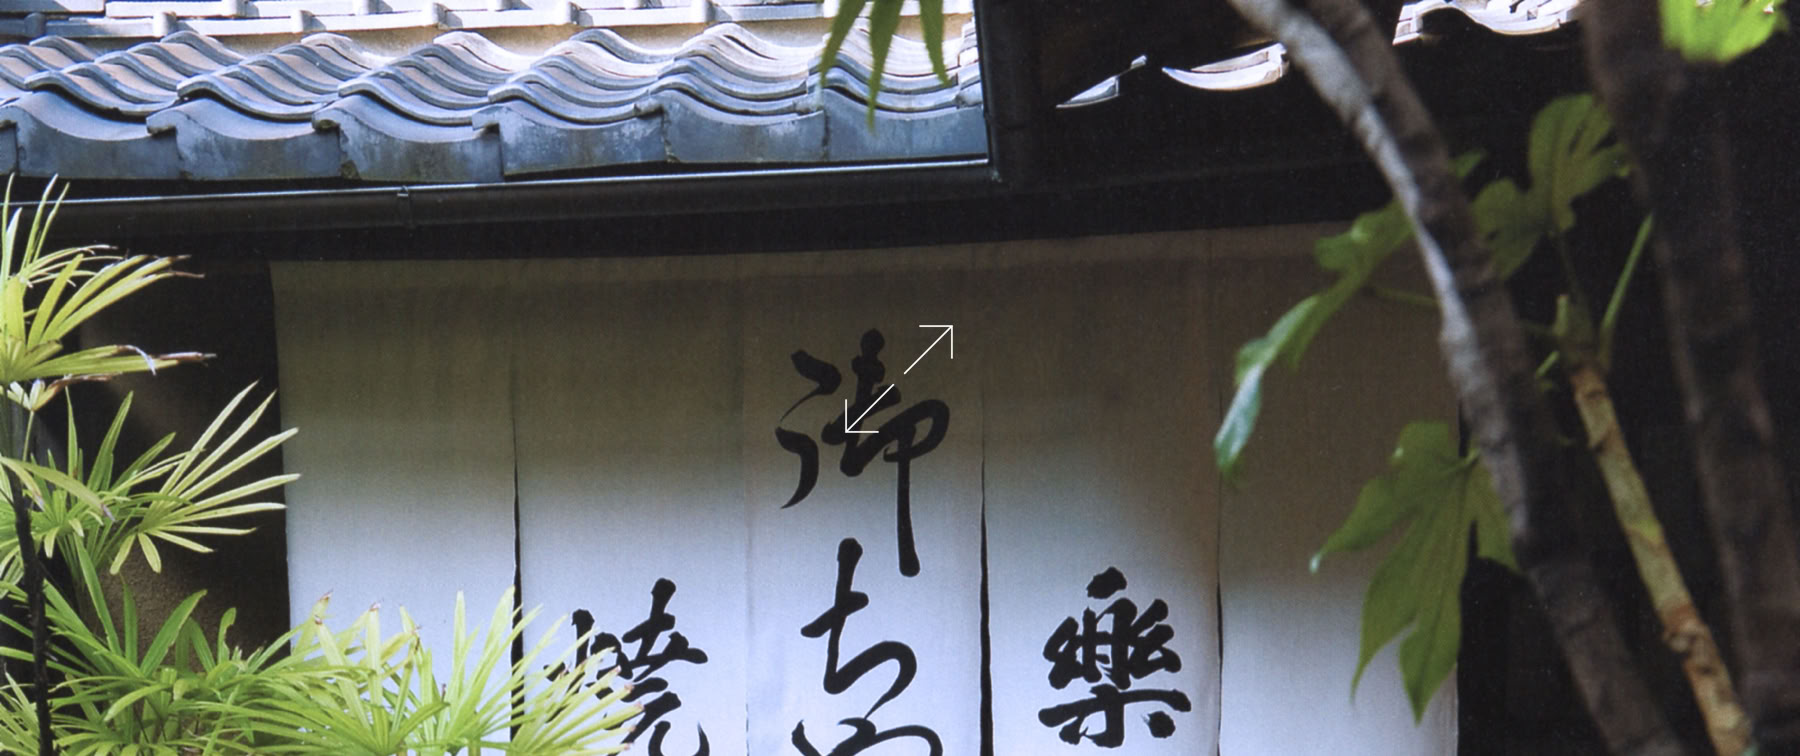 樂
御ち
焼